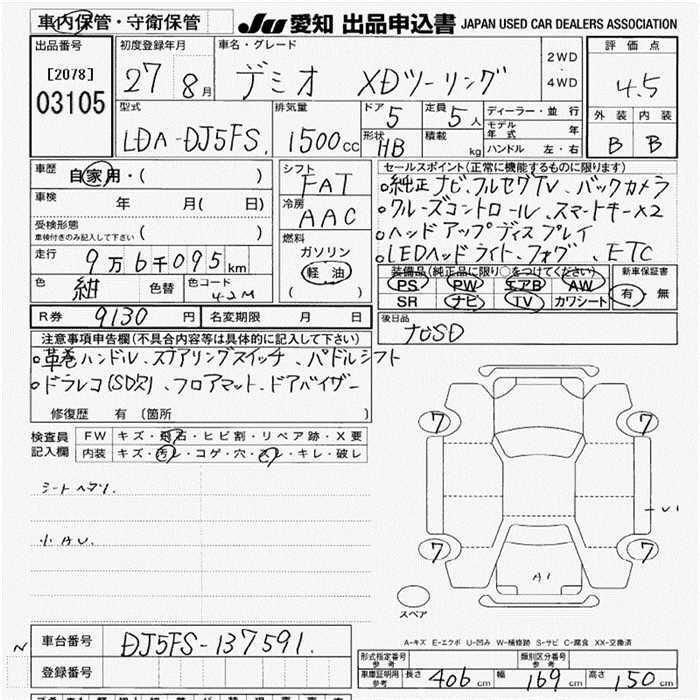 車内保管・守衛保管 JU 愛知 出品申込書 JAPAN USED CAR DEALERS ASSOCIATION
出品番号 初度登録年月 車名・グレード 評価点
[2078] 27 8月 デミオ XDツーリング 2WD ・ 4WD 4.5
03105 型式 排気量 ドア 5 定員 5人 ディーラー・並行 外装 内装
LDA-DJ5FS. 1500cc 形状 HB 積載 kg モデル年式 年 B B
ハンドル 左・右
車歴 自家用・( ) シフト FAT セールスポイント(正常に機能するものに限ります)
車検 年 月( 日) 冷房 AAC 。純正ナビ、フルセグTV、バックカメラ
受検形態 車検付きのみ記入して下さい ( ) 。クルーズコントロール、スマートキー×2
走行 9万6千095km 燃料 ガソリン 軽油 ( ) 。ヘッドアップディスプレイ
。LEDヘッドライト、フォグ、ETC
色 紺 色替 色コード 42M 装備品(純正品に限り○をつけてください) 新車保証書
PS PW エアB AW 有・無
SR ナビ TV カワシート
R券 9130円 名変期限 月 日 後日品
ナビSD
注意事項申告欄(不具合内容等は具体的に記入して下さい)
。革巻ハンドル、ステアリングスイッチ、パドルシフト
。ドラレコ(SD欠)、フロアマット、ドアバイザー
修復歴 有(箇所 )
検査員記入欄 FW キズ・飛石・ヒビ割・リペア跡・X要
内装 キズ・汚レ・コゲ・穴・スレ・キレ・破レ
7 7
シートヘタリ.
U1
小AU.
7 7
A1
スペア
A-キズ E-エクボ U-凹み W-補修跡 S-サビ C-腐食 XX-交換済
車台番号 DJ5FS-137591.
登録番号
形式指定番号 参考 類別区分番号 参考
車庫証明用 参考 長さ 406cm 幅 169cm 高さ 150cm